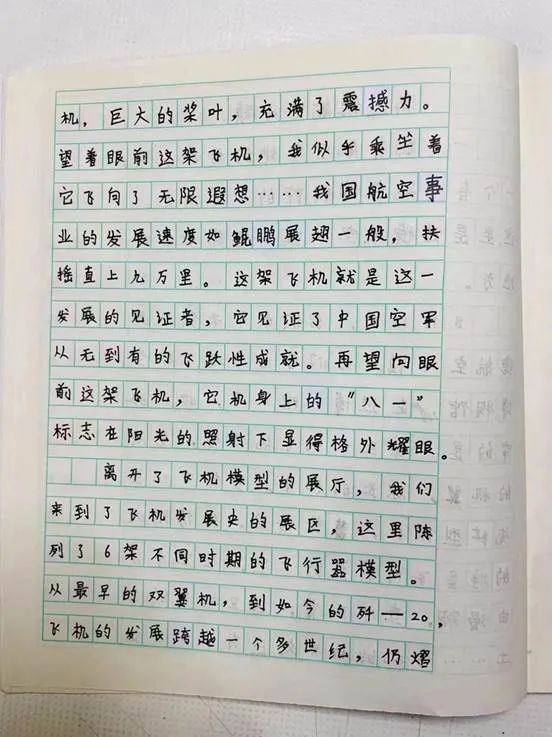 机，巨大的桨叶，充满了震撼力。
望着眼前这架飞机，我似乎乘坐着
它飞向了无限遐想……我国航空事
业的发展速度如鲲鹏展翅一般，扶
摇直上九万里。这架飞机就是这一
发展的见证者，它见证了中国空军
从无到有的飞跃性成就。再望向眼
前这架飞机，它机身上的“八一”
标志在阳光的照射下显得格外耀眼。
离开了飞机模型的展厅，我们
来到了飞机发展史的展区，这里陈
列了6架不同时期的飞行器模型。
从最早的双翼机，到如今的歼—20，
飞机的发展跨越一个多世纪，仍熠